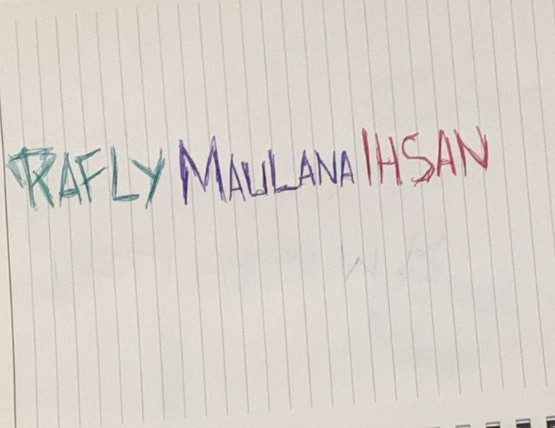 RAFLY MAULANA IHSAN